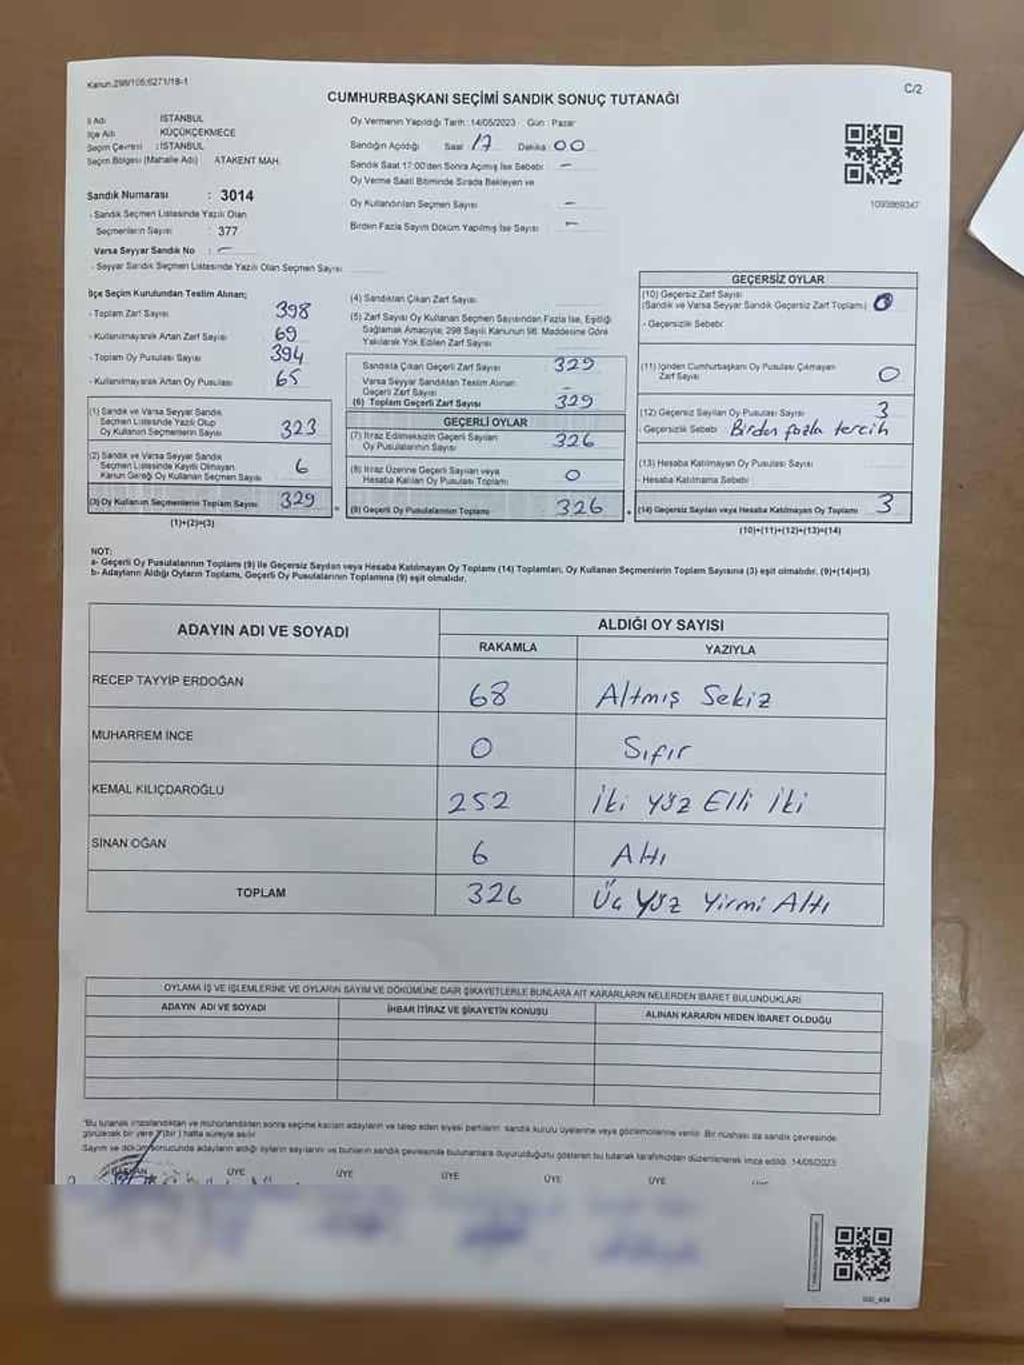 Kanun:298/105;6271/18-1
C/2
CUMHURBAŞKANI SEÇİMİ SANDIK SONUÇ TUTANAĞI
İl Adı İSTANBUL
İlçe Adı KÜÇÜKÇEKMECE
Seçim Çevresi : İSTANBUL
Seçim Bölgesi (Mahalle Adı) ATAKENT MAH.
Sandık Numarası : 3014
- Sandık Seçmen Listesinde Yazılı Olan
Seçmenlerin Sayısı : 377
Varsa Seyyar Sandık No : -
- Seyyar Sandık Seçmen Listesinde Yazılı Olan Seçmen Sayısı
Oy Vermenin Yapıldığı Tarih :14/05/2023 Gün : Pazar
Sandığın Açıldığı Saat 17 Dakika 00
Sandık Saat 17:00'den Sonra Açılmış İse Sebebi -
Oy Verme Saati Bitiminde Sırada Bekleyen ve
Oy Kullandırılan Seçmen Sayısı -
Birden Fazla Sayım Döküm Yapılmış İse Sayısı -
1093869347
İlçe Seçim Kurulundan Teslim Alınan;
- Toplam Zarf Sayısı 398
- Kullanılmayarak Artan Zarf Sayısı 69
- Toplam Oy Pusulası Sayısı 394
- Kullanılmayarak Artan Oy Pusulası 65
(1) Sandık ve Varsa Seyyar Sandık
Seçmen Listesinde Yazılı Olup
Oy Kullanan Seçmenlerin Sayısı 323
(2) Sandık ve Varsa Seyyar Sandık
Seçmen Listesinde Kayıtlı Olmayan
Kanun Gereği Oy Kullanan Seçmen Sayısı 6
(3) Oy Kullanan Seçmenlerin Toplam Sayısı 329
(1)+(2)=(3)
(4) Sandıktan Çıkan Zarf Sayısı
(5) Zarf Sayısı Oy Kullanan Seçmen Sayısından Fazla İse, Eşitliği
Sağlamak Amacıyla; 298 Sayılı Kanunun 98. Maddesine Göre
Yakılarak Yok Edilen Zarf Sayısı
Sandıkta Çıkan Geçerli Zarf Sayısı 329
Varsa Seyyar Sandıktan Teslim Alınan
Geçerli Zarf Sayısı -
(6) Toplam Geçerli Zarf Sayısı 329
GEÇERLİ OYLAR
(7) İtiraz Edilmeksizin Geçerli Sayılan
Oy Pusulalarının Sayısı 326
(8) İtiraz Üzerine Geçerli Sayılan veya
Hesaba Katılan Oy Pusulası Toplamı 0
(9) Geçerli Oy Pusulalarının Toplamı 326
=
+
GEÇERSİZ OYLAR
(10) Geçersiz Zarf Sayısı
(Sandık ve Varsa Seyyar Sandık Geçersiz Zarf Toplamı) 0
- Geçersizlik Sebebi
(11) İçinden Cumhurbaşkanı Oy Pusulası Çıkmayan
Zarf Sayısı 0
(12) Geçersiz Sayılan Oy Pusulası Sayısı 3
- Geçersizlik Sebebi Birden fazla tercih
(13) Hesaba Katılmayan Oy Pusulası Sayısı
- Hesaba Katılmama Sebebi
(14) Geçersiz Sayılan veya Hesaba Katılmayan Oy Toplamı 3
(10)+(11)+(12)+(13)=(14)
NOT:
a- Geçerli Oy Pusulalarının Toplamı (9) ile Geçersiz Sayılan veya Hesaba Katılmayan Oy Toplamı (14) Toplamları, Oy Kullanan Seçmenlerin Toplam Sayısına (3) eşit olmalıdır. (9)+(14)=(3)
b- Adayların Aldığı Oyların Toplamı, Geçerli Oy Pusulalarının Toplamına (9) eşit olmalıdır.
ADAYIN ADI VE SOYADI ALDIĞI OY SAYISI
RAKAMLA YAZIYLA
RECEP TAYYİP ERDOĞAN 68 Altmış Sekiz
MUHARREM İNCE 0 Sıfır
KEMAL KILIÇDAROĞLU 252 İki Yüz Elli İki
SİNAN OĞAN 6 Altı
TOPLAM 326 Üç Yüz Yirmi Altı
OYLAMA İŞ VE İŞLEMLERİNE VE OYLARIN SAYIM VE DÖKÜMÜNE DAİR ŞİKAYETLERLE BUNLARA AİT KARARLARIN NELERDEN İBARET BULUNDUKLARI
ADAYIN ADI VE SOYADI İHBAR İTİRAZ VE ŞİKAYETİN KONUSU ALINAN KARARIN NEDEN İBARET OLDUĞU
"Bu tutanak imzalandıktan ve mühürlendikten sonra seçime katılan adayların ve talep eden siyasi partilerin sandık kurulu üyelerine veya gözlemcilerine verilir. Bir nüshası da sandık çevresinde
görülecek bir yere 7(bir) hafta süreyle asılır.
Sayım ve döküm sonucunda adayların aldığı oyların sayılarını ve bunların sandık çevresinde bulunanlara duyurulduğunu gösteren bu tutanak tarafımızdan düzenlenerek imza edildi. 14/05/2023
BAŞKAN ÜYE ÜYE ÜYE ÜYE ÜYE